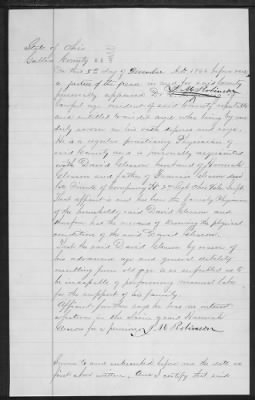 State of Ohio
Gallia County SS
On this 5th day of December A.D. 1866 before me
a Justice of the peace in and for said County
personally appeared Dr. J. M. Robinson
lawful age resident of said County reputable
and entitled to credit and who being by me
duly sworn on his oath deposes and says.
He is a regular practicing Physician of
said County and is personally acquainted
with David Clewson husband of Hannah
Clewson and father of Francis Clewson dec
late Private of Company
That affiant is and has been the family Physician
of the household of said David Clewson and
therefore has the means of knowing the physical
condition of the said David Clewson.
That the said David Clewson by reason of
his advanced age and general debility
resulting from old age is so enfeebled as to
be incapable of performing manual labor
for the support of his family.
Affiant further says he has no interest
in the claim of said Hannah
Clewson for a pension J. M. Robinson
Sworn to and subscribed before me the date as
first above written. And I certify that said